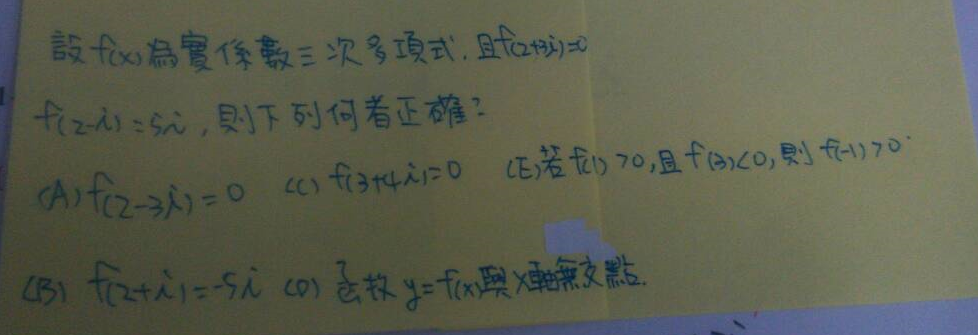 設f(x)為實係數三次多項式,且f(2+3i)=0
f(2-i)=5i,則下列何者正確?
(A)f(2-3i)=0 (C)f(3+4i)=0 (E)若f(1)>0,且f(3)<0,則f(-1)>0
(B) f(2+i)=-5i (D) 函数 y=f(x)與X軸無交點.